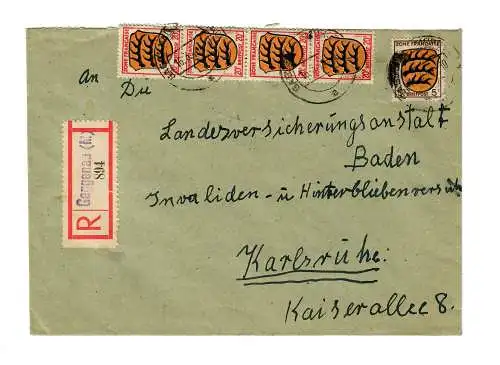 ZONE FRANÇAISE ZONE FRANÇAISE ZONE FRANÇAISE ZONE FRANÇAISE ZONE FRANÇAISE
20 20 20 20 5
An
Die
Landesversicherungsanstalt
Baden
Invaliden - u Hinterbliebenvers
Karlsruhe:
Kaiserallee 8.
R
Gaggenau
894